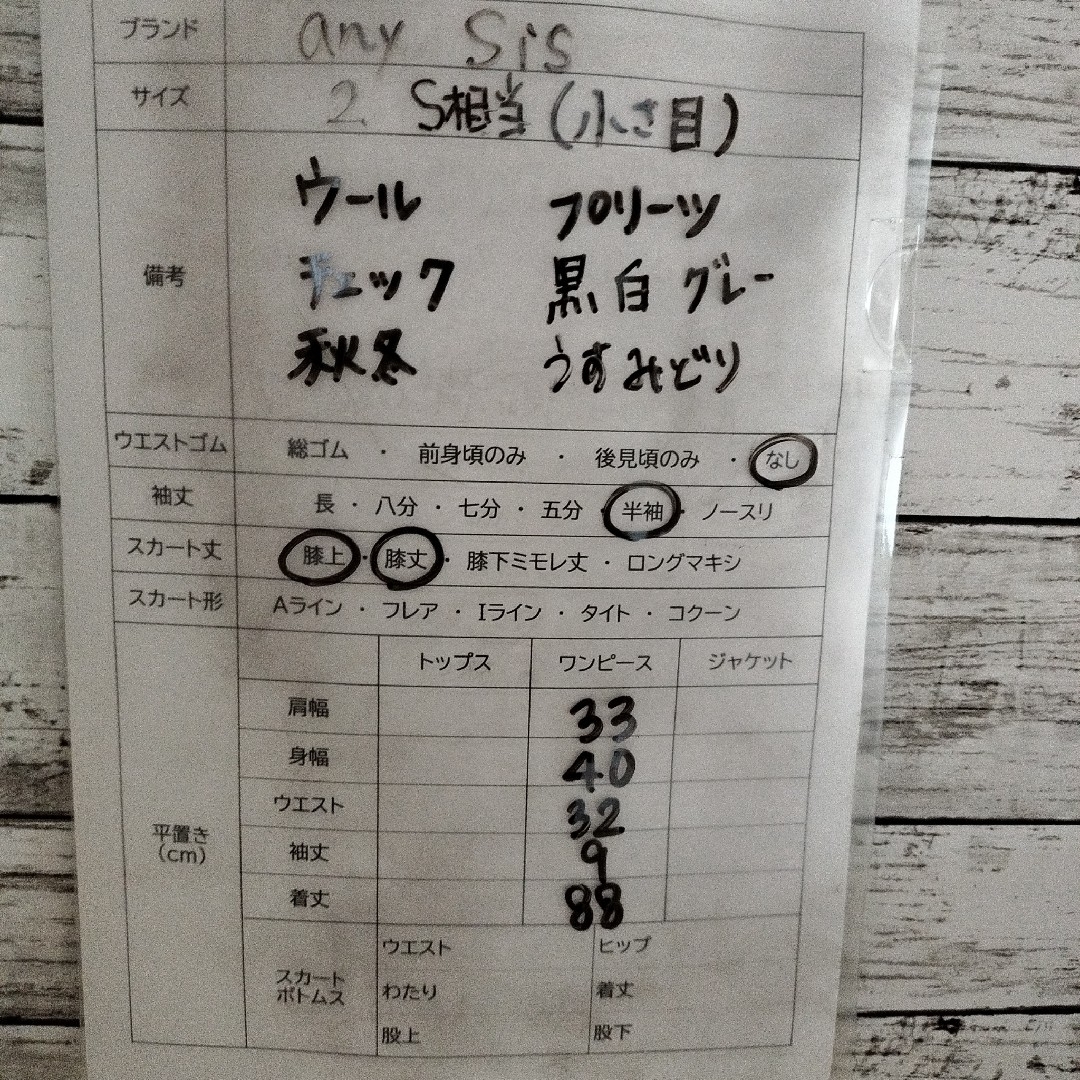 ブランド any Sis
サイズ 2 S相当(小さ目)
備考
ウール プリーツ
チェック 黒 白 グレー
秋冬 うすみどり
ウエストゴム 総ゴム ・ 前身頃のみ ・ 後見頃のみ ・ なし
袖丈 長 ・ 八分 ・ 七分 ・ 五分 ・ 半袖 ・ ノースリ
スカート丈 膝上 ・ 膝丈 ・ 膝下ミモレ丈 ・ ロングマキシ
スカート形 Aライン ・ フレア ・ Iライン ・ タイト ・ コクーン
平置き
(cm)
トップス ワンピース ジャケット
肩幅 33
身幅 40
ウエスト 32
袖丈 9
着丈 88
スカート
ボトムス
ウエスト ヒップ
わたり 着丈
股上 股下